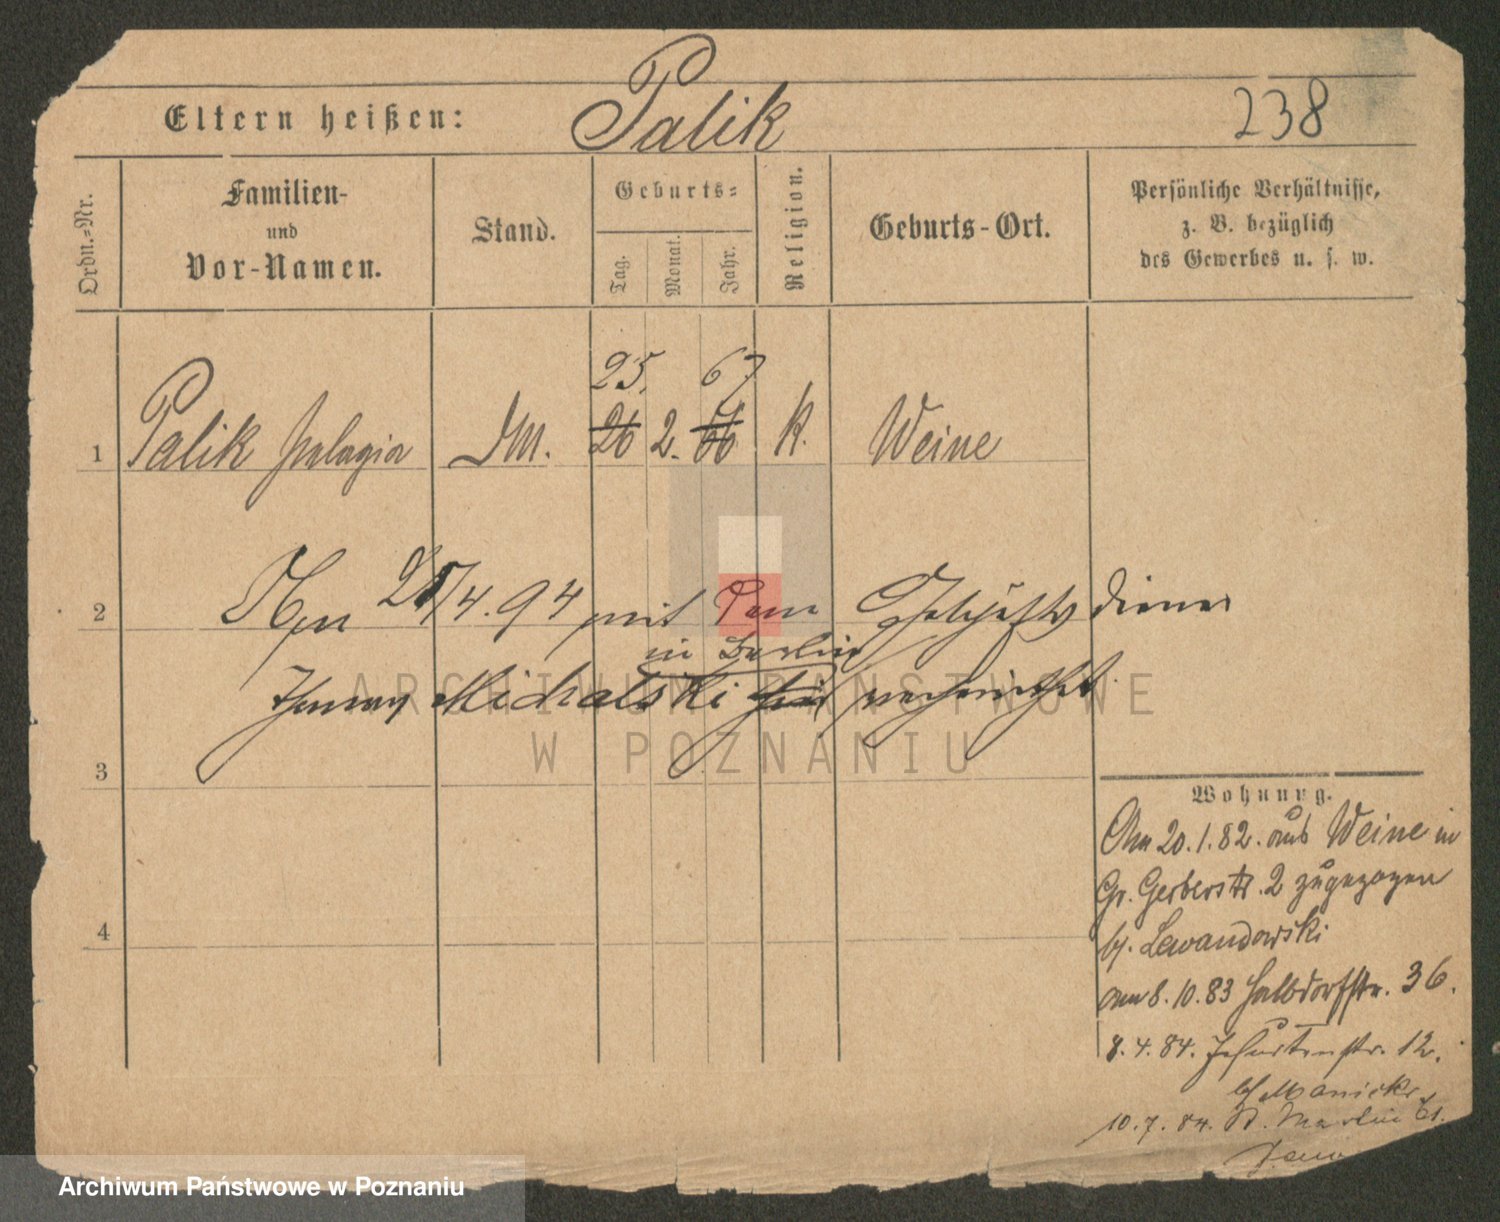 Eltern heißen: Palik 238
Ordn.=Nr.
Familien-
und
Vor-Namen.
Stand.
Geburts=
Tag.
Monat.
Jahr.
Religion.
Geburts-Ort.
Persönliche Verhältnisse,
z. B. bezüglich
des Gewerbes u. s. w.
25. 67
1 Palik Pelagia M. 26 2. 66 k. Weine
2 /4. 94 mit dem Geschäftsdiener
in Berlin
Michalski verheirathet.
ARCHIWUM PAŃSTWOWE
W POZNANIU
3
Wohnung.
Am 20.1.82. aus Weine in
Gr. Gerberstr. 2 zugezogen
4
b/. Lewandowski
am 8.10.83 Halbdorfstr. 36.
8.4.84. Jesuitenstr. 12.
10.7.84. St. Martin 61.
Archiwum Państwowe w Poznaniu